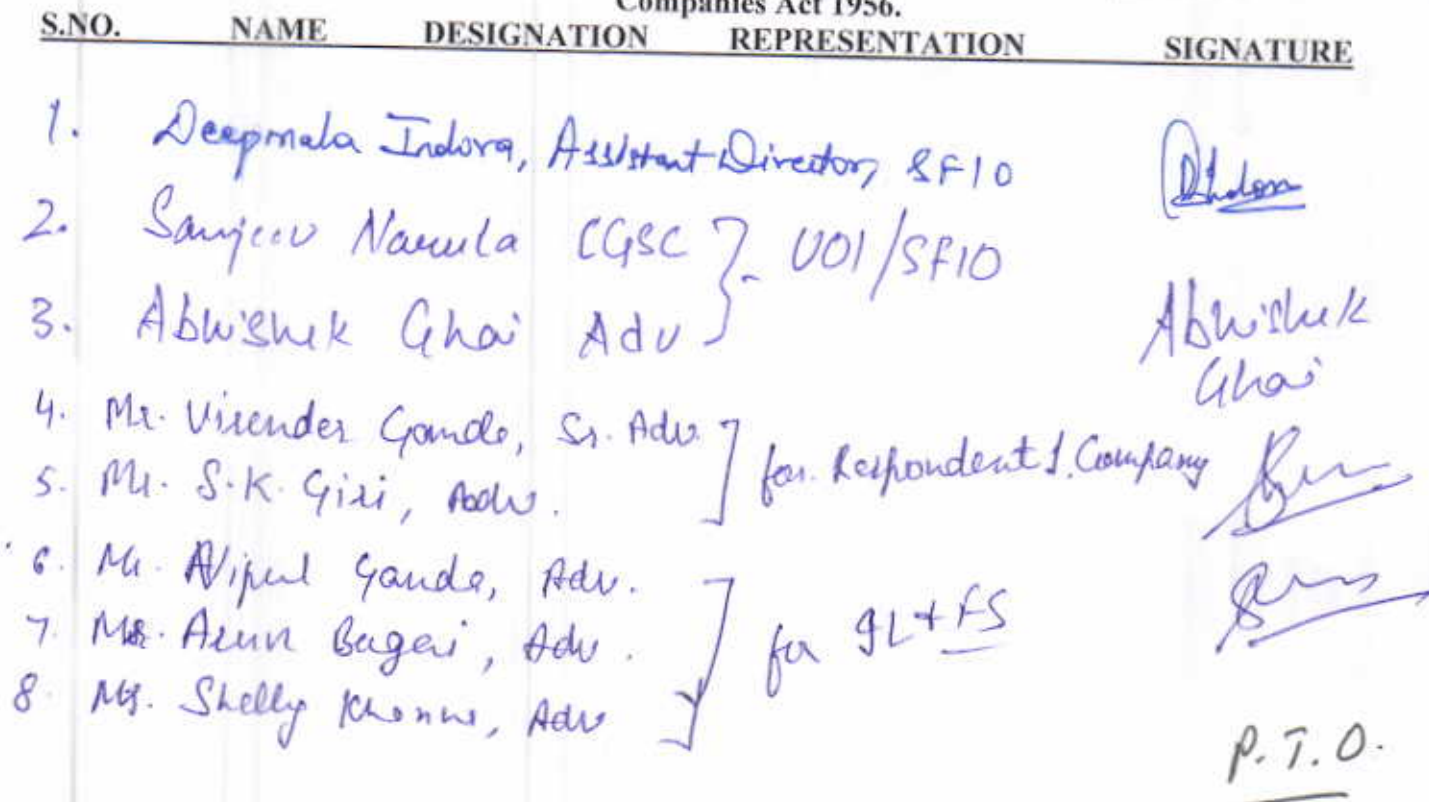 Companies Act 1956.
S.NO. NAME DESIGNATION REPRESENTATION SIGNATURE
1. Deepmala Indora, Assistant Director, SFIO
2. Sanjeev Narula CGSC } - UOI/SFIO
3. Abhishek Ghai Adv Abhishek Ghai
4. Mr. Virender Ganda, Sr. Adv. ] for Respondent 1. Company
5. Mr. S.K. Giri, Adv.
6. Mr. Vipul Ganda, Adv.
7. Mr. Arun Bageri, Adv. ] for IL+FS
8. Ms. Shelly Khanna, Adv
P.T.O.